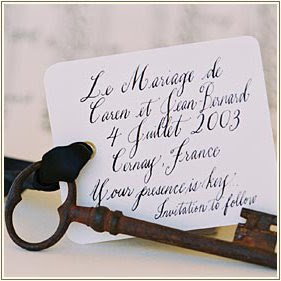 Le Mariage de
Caren et Jean-Bernard
4 Juillet 2003
Cernay, France
Your presence is key...
Invitation to follow